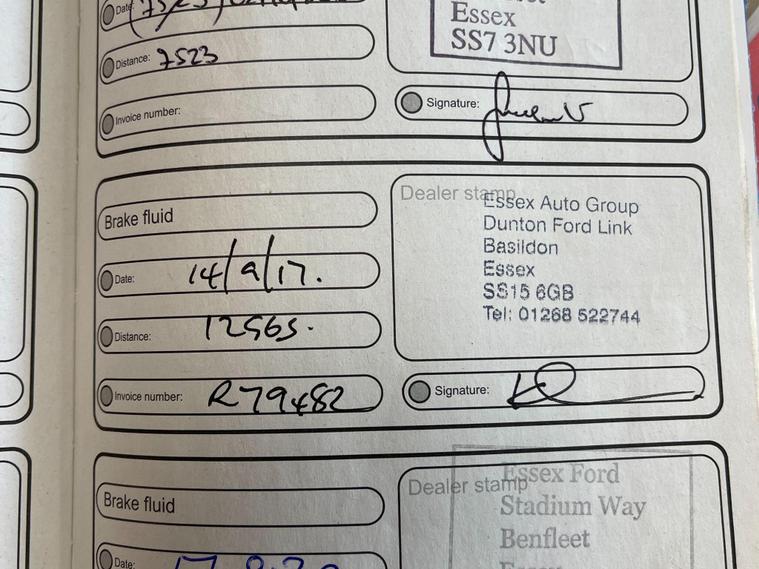 Date:
Essex
SS7 3NU
Distance: 7523
Invoice number:
Signature:
Brake fluid
Dealer stamp
Essex Auto Group
Dunton Ford Link
Basildon
Essex
SS15 6GB
Tel: 01268 522744
Date: 14/9/17.
Distance: 12565.
Invoice number: R79482
Signature:
Brake fluid
Dealer stamp
Essex Ford
Stadium Way
Benfleet
Essex
Date: